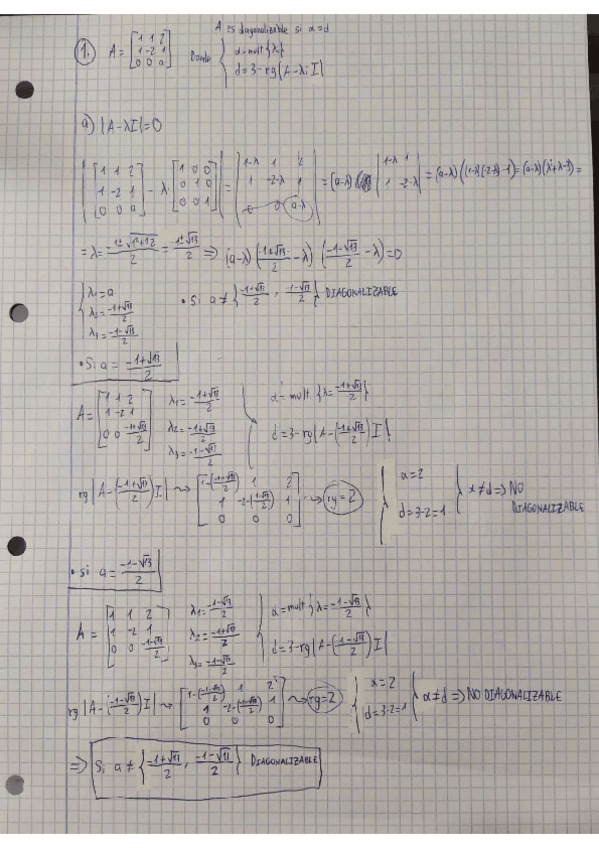 A es diagonalizable si α=d
1. A = [1 1 2; 1 -2 1; 0 0 a] Donde { α=mult{λi}; d=3-rg|A-λiI|
a) |A-λI|=0
|[1 1 2; 1 -2 1; 0 0 a] - λ·[1 0 0; 0 1 0; 0 0 1]| = |1-λ 1 2; 1 -2-λ 1; 0 0 a-λ| = (a-λ) |1-λ 1; 1 -2-λ| = (a-λ)((1-λ)(-2-λ)-1) = (a-λ)(λ²+λ-3) =
= λ = (-1±√(1²+12))/2 = (-1±√13)/2 ⇒ (a-λ)((-1+√13)/2 -λ)((-1-√13)/2 -λ)=0
{ λ1=a; λ2=(-1+√13)/2; λ3=(-1-√13)/2
• Si a≠{(-1+√13)/2, (-1-√13)/2} DIAGONALIZABLE
• Si a = (-1+√13)/2
A = [1 1 2; 1 -2 1; 0 0 (-1+√13)/2] λ1=(-1+√13)/2 λ2=(-1+√13)/2 λ3=(-1-√13)/2 { α=mult{λ=(-1+√13)/2}; d=3-rg|A-((-1+√13)/2)I|
rg|A-((-1+√13)/2)I| ⇝ [1-((-1+√13)/2) 1 2; 1 -2-((-1+√13)/2) 1; 0 0 0] ⇝ rg=2 { α=2; d=3-2=1 } α≠d ⇒ NO DIAGONALIZABLE
• si a = (-1-√13)/2
A = [1 1 2; 1 -2 1; 0 0 (-1-√13)/2] λ1=(-1-√13)/2 λ2=(-1+√13)/2 λ3=(-1-√13)/2 { α=mult{λ=(-1-√13)/2}; d=3-rg|A-((-1-√13)/2)I|
rg|A-((-1-√13)/2)I| ⇝ [1-((-1-√13)/2) 1 2; 1 -2-((-1-√13)/2) 1; 0 0 0] ⇝ rg=2 { α=2; d=3-2=1 { α≠d ⇒ NO DIAGONALIZABLE
⇒ Si a≠{(-1+√13)/2, (-1-√13)/2} DIAGONALIZABLE